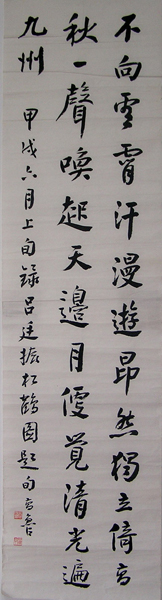 不向雲霄汗漫遊昂然獨立倚高
秋一聲喚起天邊月便覺清光遍
九州
甲戌六月上旬錄呂廷振松鶴圖題句